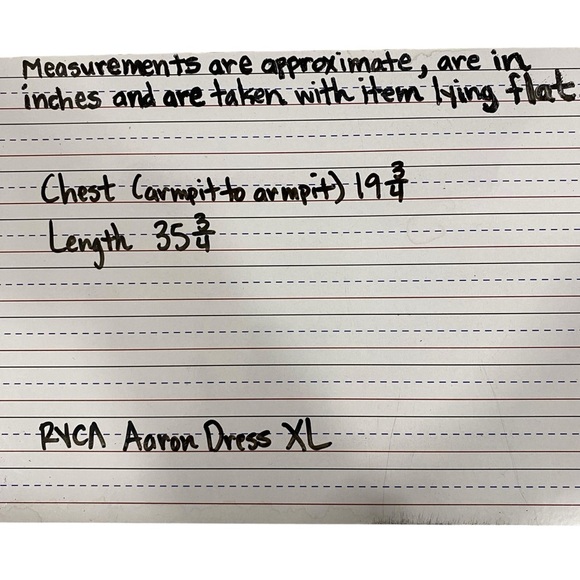 Measurements are approximate, are in
inches and are taken with item lying flat
Chest (armpit to armpit) 19 3/4
Length 35 3/4
RVCA Aaron Dress XL